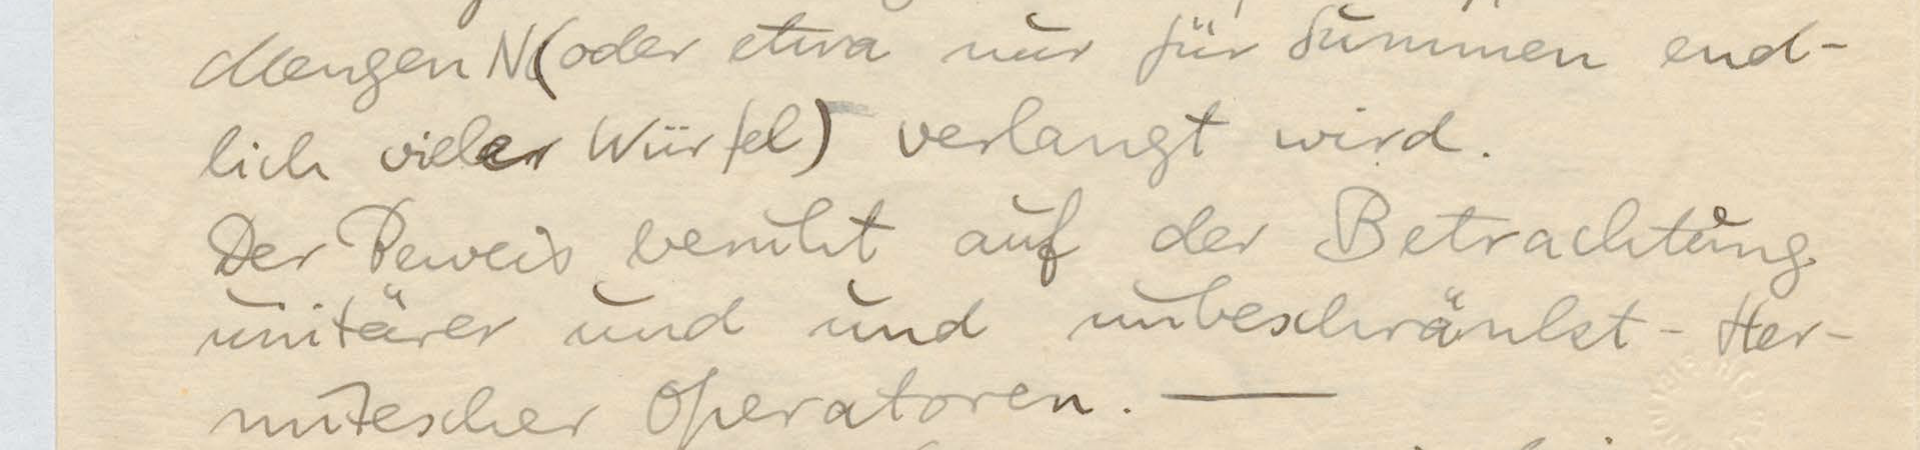 Mengen N (oder etwa nur für Summen end-
lich vieler Würfel) verlangt wird.
Der Beweis beruht auf der Betrachtung
unitärer und und unbeschränkt-Her-
mitescher Operatoren. —